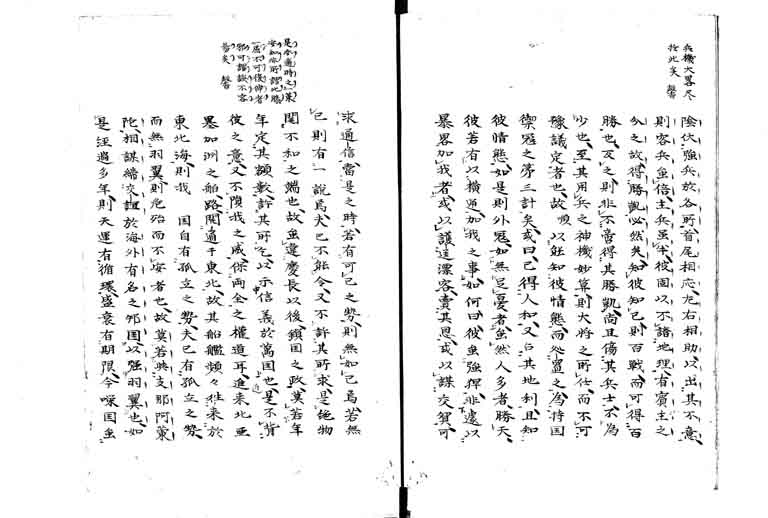 兵機大畧尽
於此矣 聲
陰伏強兵於各所首尾相応左右相助以出其不意
則客兵虽倍主兵虽半彼固以不諳地理有賓主之
分之故得勝凱必然矣知彼知己則百戦而可得百
勝也反之則非不啻得其勝凱而且傷其兵士不為
少也至其用兵之神機妙算則大将之所任而不可
豫議定者也故 以能知彼情態而処置之為持国
禦冦之第三計矣或曰已得人和又占其地利且知
彼情態如是則外冦如無足憂者虽然人多者勝天
彼若有以横逆加我之事如何曰彼虽強猂非遽以
暴畧加我者或以護送漂客賣其恩或以謀交貿可
是亦適時之策
安知不可復伸者
可謂識不容
聲
求通信當是之時若有可已之勢則無如已焉若無
已則有一説焉夫已不能令又不許其所求是絶物
聞不和之端也故虽違慶長以後鎖国之政莫若年
年定其額數許其所乞以示信義於萬国也是不背
彼之意又不隕我之威保両全之權道耳進来北亜
墨加洲之舶路開通于東北故其船艦頻々往来於
東北海則我 国自有孤立之勢夫已有孤立之勢
而無羽翼則危殆而不安者也故莫若与支那阿蒙
陀相謀締交誼於海外有名之邦国以強羽翼也如
是経過多年則天運有循環盛衰有期限今暎国虽